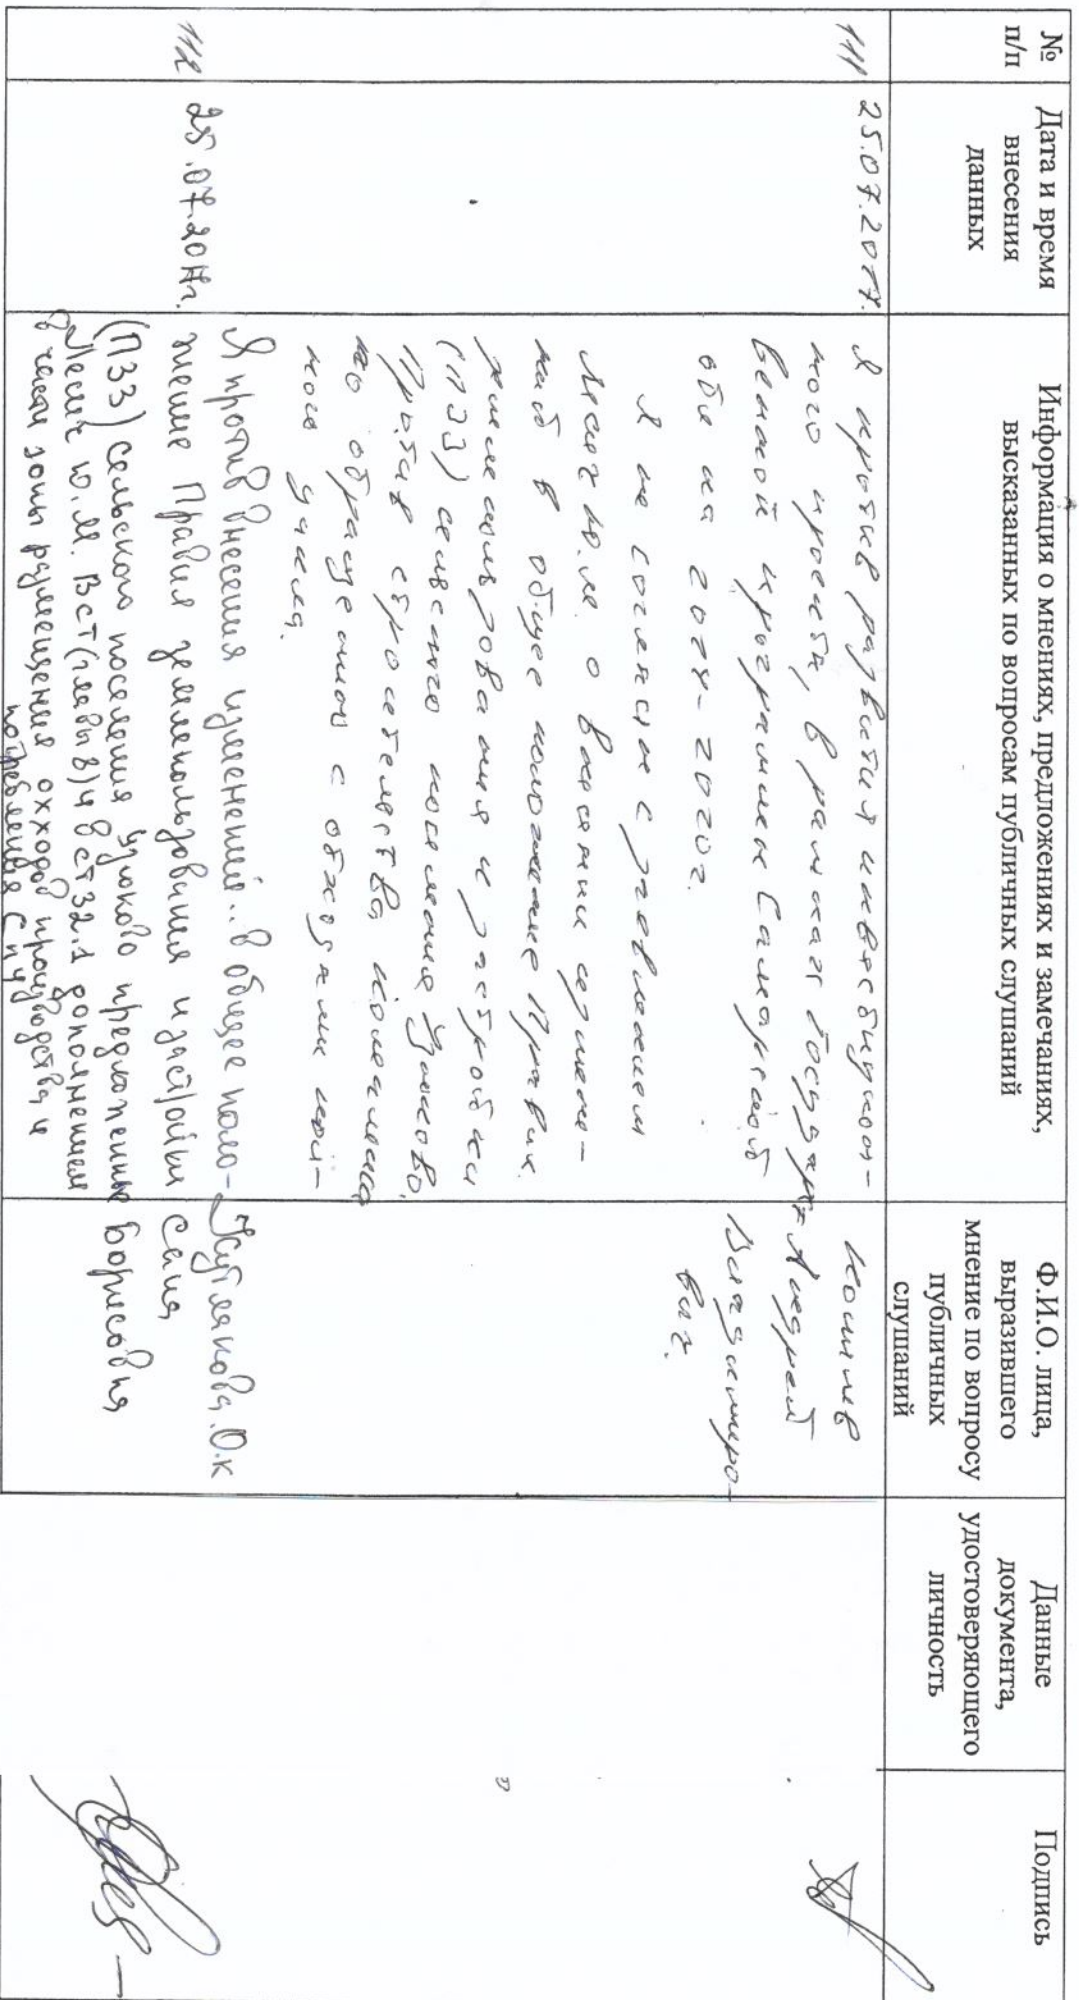 №
п/п
Дата и время
внесения
данных
Информация о мнениях, предложениях и замечаниях,
высказанных по вопросам публичных слушаний
Ф.И.О. лица,
выразившего
мнение по вопросу
публичных
слушаний
Данные
документа,
удостоверяющего
личность
Подпись
111
25.07.2017г.
Я против развития инвестицион-
ного проекта, в рамках Государст-
венной программы Самарской
обл на 2014-2020г.
Я не согласен с заявлением
Лесик Ю.М. о внесении измене-
ний в общее положение Правил
землепользования и застройки
(ПЗЗ) сельского поселения Узюково.
Против строительства
по обращению с отходами
Андрей
Владимиро-
вич.
112
25.07.2017г.
Я против внесения изменений.. в общее поло-
жение Правил землепользования и застройки
(ПЗЗ) сельского поселения Узюково предложенные
Лесик Ю.М. В ст (главы 8) и в ст 32.1 дополнением
в части зоны размещения охходов производства и
потребления СП4
О.к
Борисовна